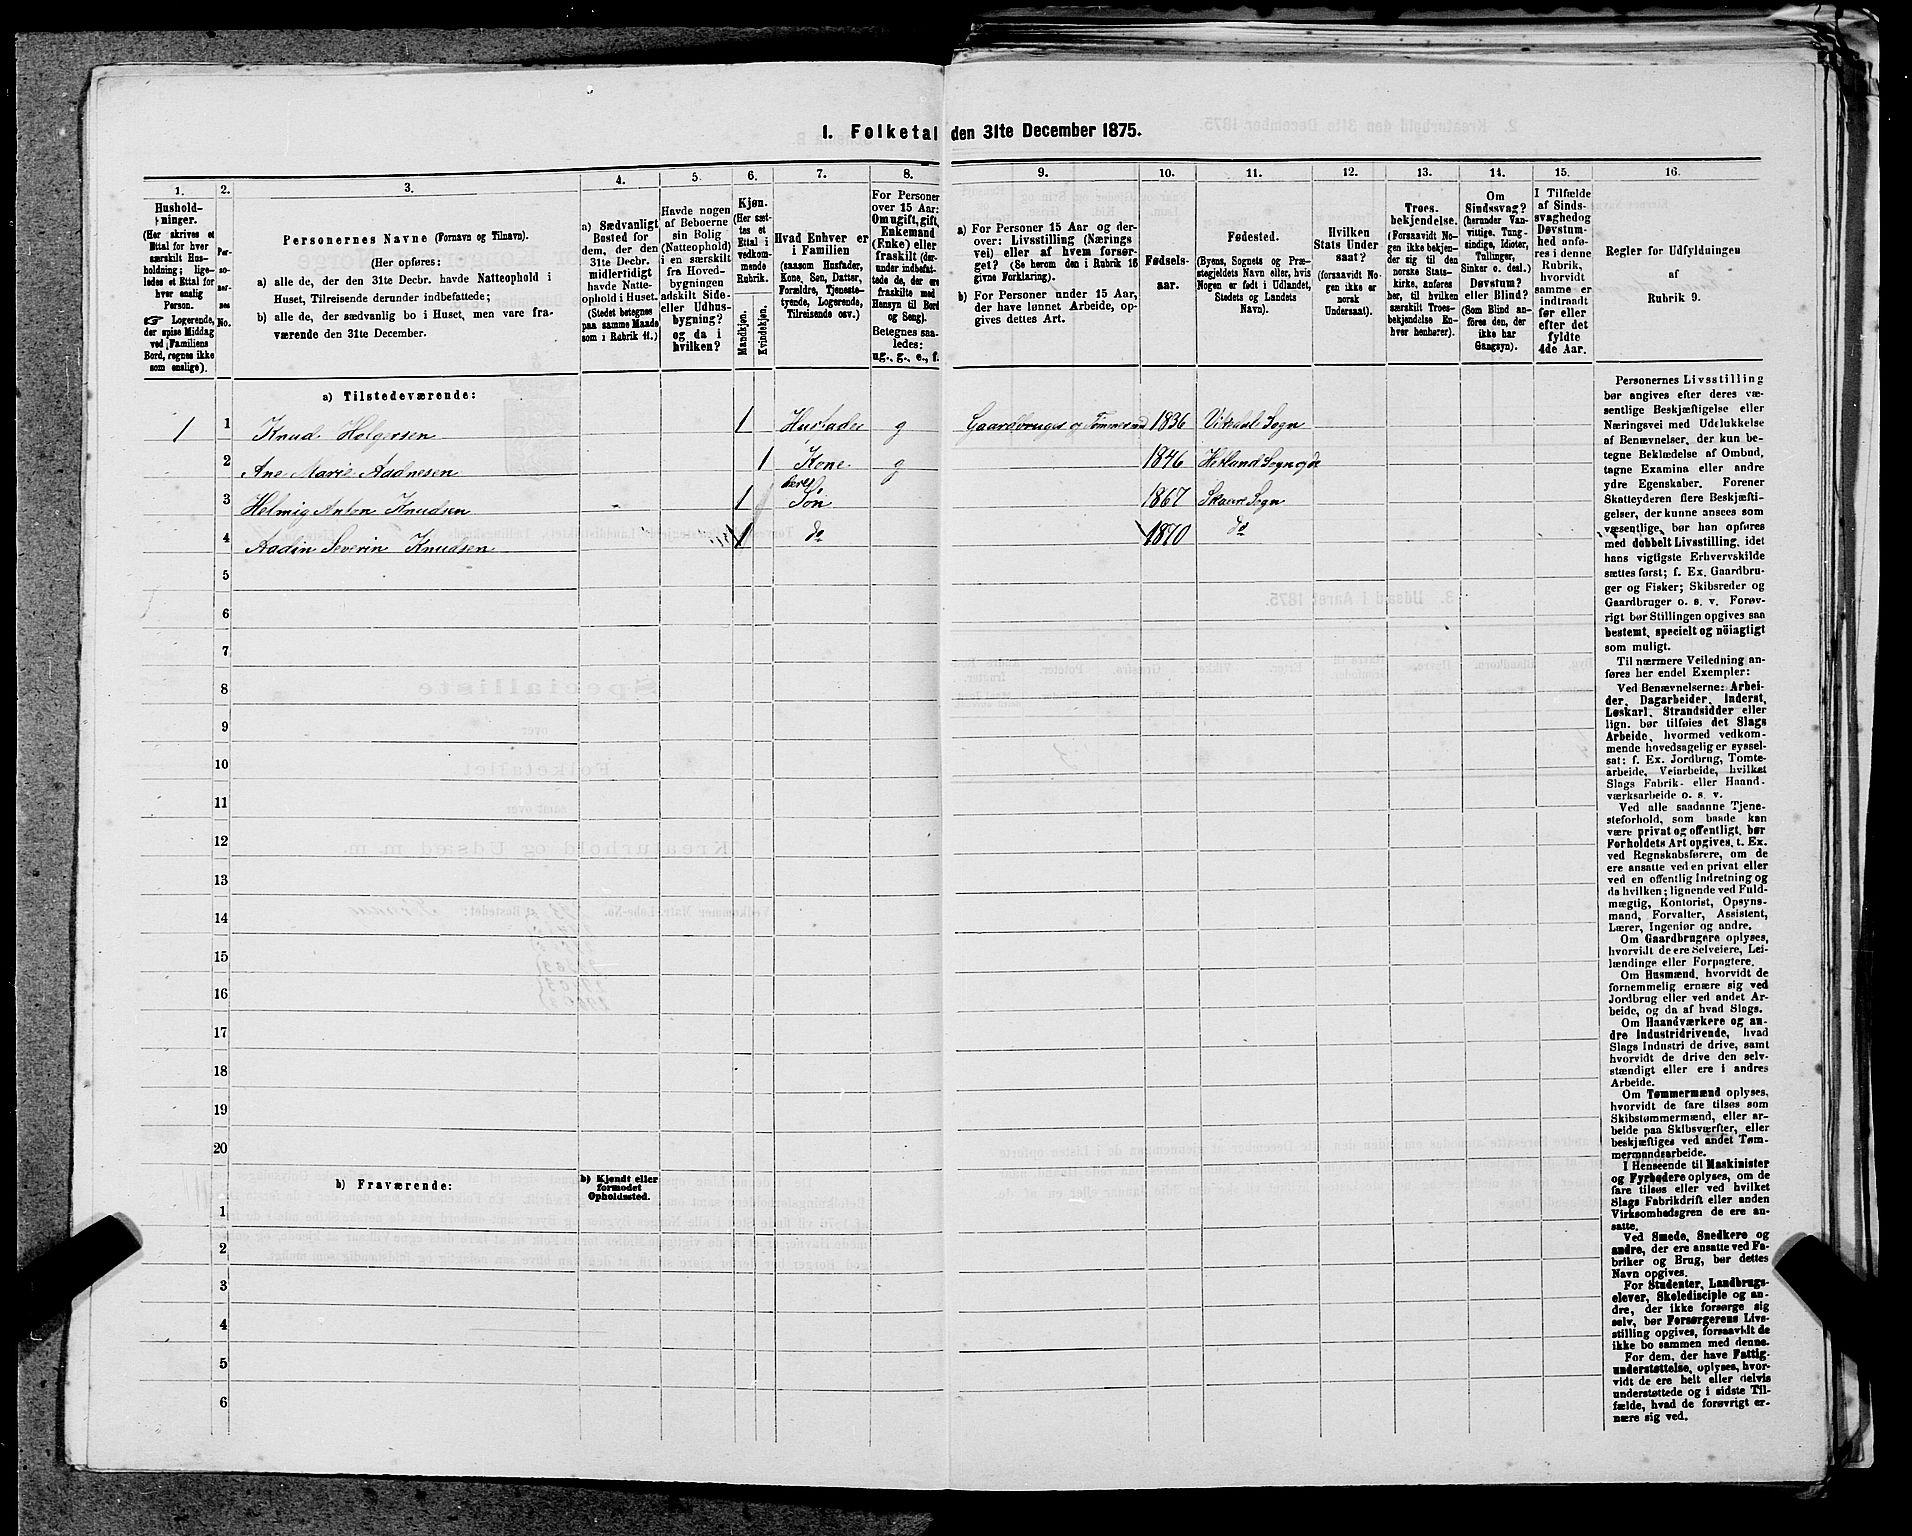 1. Folketal den 31te December 1875.
1. 2. 3. 4. 5. 6. 7. 8. 9. 10. 11. 12. 13. 14. 15. 16.
Hushold-
ninger.
(Her skrives et
Ettal for hver
særskilt Hus-
holdning; lige-
ledes et Ettal for
hver enslig
Person.
☞ Logerende,
der spise Middag
ved Familiens
Bord, regnes ikke
som enslige).
Per-
so-
ner-
nes
No.
Personernes Navne (Fornavn og Tilnavn).
(Her opføres:
a) alle de, der den 31te Decbr. havde Natteophold i
Huset, Tilreisende derunder indbefattede;
b) alle de, der sædvanlig bo i Huset, men vare fra-
værende den 31te December.
a) Sædvanligt
Bosted for
dem, der den
31te Decbr.
midlertidigt
havde Natte-
ophold i Huset.
(Stedet betegnes
paa samme Maade
som i Rubrik 11.)
Havde nogen
af Beboerne
sin Bolig
(Natteophold)
i en særskilt
fra Hoved-
bygningen
adskilt Side-
eller Udhus-
bygning?
og da i
hvilken?
Kjøn.
(Her sæt-
tes et
Ettal i
vedkom-
mende
Rubrik.
Mandkjøn.
Kvindekjøn.
Hvad Enhver er
i Familien
(saasom Husfader,
Kone, Søn, Datter,
Forældre, Tjeneste-
tyende, Logerende,
Tilreisende osv.)
For Personer
over 15 Aar:
Om ugift, gift,
Enkemand
(Enke) eller
fraskilt (der-
under indbefat-
tede de, der ere
fraskilte med
Hensyn til Bord
og Seng).
Betegnes saa-
ledes:
ug., g., e., f.
a) For Personer 15 Aar og der-
over: Livsstilling (Nærings
vei) eller af hvem forsør-
get? (Se herom den i Rubrik 16
givne Forklaring).
b) For Personer under 15 Aar,
der have lønnet Arbeide, op-
gives dettes Art.
Fødsels-
aar.
Fødested.
(Byens, Sognets og Præ-
stegjeldets Navn eller, hvis
Nogen er født i Udlandet,
Stedets og Landets
Navn).
Hvilken
Stats Under
saat?
(forsaavidt No-
gen ikke er
norsk
Undersaat).
Troes-
bekjendelse.
(Forsaavidt No-
gen ikke bekjen-
der sig til den
norske Stats-
kirke, anføres
her, til hvilken
særskilt Troes-
bekjendelse En-
hver henhører).
Om
Sindssvag?
(herunder Van-
vittige, Tung-
sindige, Idioter,
Tullinger,
Sinker o. desl.)
Døvstum?
eller Blind?
(Som Blind an-
føres den, der
ikke har
Gangsyn).
I Tilfælde
af Sinds-
svaghed og
Døvstum-
hed anfø-
res i denne
Rubrik,
hvorvidt
samme er
indtraadt
før eller
efter det
fyldte
4de Aar.
Regler for Udfyldningen
af
Rubrik 9.
a) Tilstedeværende:
1 1 Knud Holgersen 1 Husfader g Gaardbruger og 1836 Vikedal Sogn
2 Ane Marie Aadnesen 1 Kone g 1846 Hetland Sogn
deres
3 Helmig Anton Knudsen 1 Søn 1867 Skaare Sogn
4 Aadin Severin Knudsen 1 do 1870 do
5
6
7
8
9
10
11
12
13
14
15
16
17
18
19
20
b) Fraværende:
b) Kjendt eller
formodet
Opholdssted.
1
2
3
4
5
6
Personernes Livsstilling
bør angives efter deres væ-
sentlige Beskjæftigelse eller
Næringsvei med Udelukkelse
af Benævnelser, der kun be-
tegne Beklædelse af Ombud,
tagne Examina eller andre
ydre Egenskaber. Forener
Skatteyderen flere Beskjæfti-
gelser, der kunne ansees som
væsentlige, bør han opføres
med dobbelt Livsstilling, idet
hans vigtigste Erhvervskilde
sættes først; f. Ex. Gaardbru-
ger og Fisker; Skibsreder og
Gaardbruger o. s. v. Forøv-
rigt bør Stillingen opgives saa
bestemt, specielt og nöiagtigt
som muligt.
Til nærmere Veiledning an-
føres her endel Exempler:
Ved Benævnelserne: Arbei-
der, Dagarbeider, Inderst,
Løskarl, Strandsidder eller
lign. bør tilføies det Slags
Arbeide, hvormed vedkom-
mende hovedsagelig er syssel-
sat; f. Ex. Jordbrug, Tomte-
arbeide, Veiarbeide, hvilket
Slags Fabrik- eller Haand-
værksarbeide o. s. v.
Ved alle saadanne Tjene-
steforhold, som baade kan
være privat og offentligt, bør
Forholdets Art opgives, t. Ex.
ved Regnskabsførere, om de
ere ansatte ved en privat eller
ved en offentlig Indretning og
da hvilken; lignende ved Fuld-
mægtig, Kontorist, Opsyns-
mand, Forvalter, Assistent,
Lærer, Ingeniør og andre.
Om Gaardbrugere oplyses,
hvorvidt de ere Selveiere, Lei-
lændinge eller Forpagtere.
Om Husmænd, hvorvidt de
fornemmelig ernære sig ved
Jordbrug eller ved andet Ar-
beide, og da af hvad Slags.
Om Haandværkere og an-
dre Industridrivende, hvad
Slags Industri de drive, samt
hvorvidt de drive den selv-
stændigt eller ere i andres
Arbeide.
Om Tømmermænd oplyses,
hvorvidt de fare tilsøs som
Skibstømmermænd, eller ar-
beide paa Skibsværfter, eller
beskjæftiges ved andet Tøm-
mermandsarbeide.
I Henseende til Maskinister
og Fyrbødere oplyses, om de
fare tilsøs eller ved hvilket
Slags Fabrikdrift eller anden
Virksomhedsgren de ere an-
satte.
Ved Smede, Snedkere og
andre, der ere ansatte ved Fa-
briker og Brug, bør dettes
Navn opgives.
For Studenter, Landbrugs-
elever, Skoledisciple og an-
dre, der ikke forsørge sig
selv, bør Forsørgerens Livs-
stilling opgives, forsaavidt de
ikke bo sammen med denne.
For dem, der have Fattig-
understøttelse, oplyses, hvor-
vidt de ere helt eller delvis
understøttede og i sidste Til-
fælde, hvad de forøvrigt er-
nære sig ved.